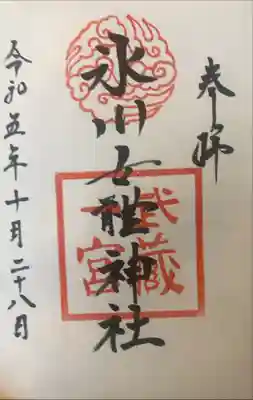 奉拝
氷川女體神社
武蔵
一宮
令和五年十月二十八日